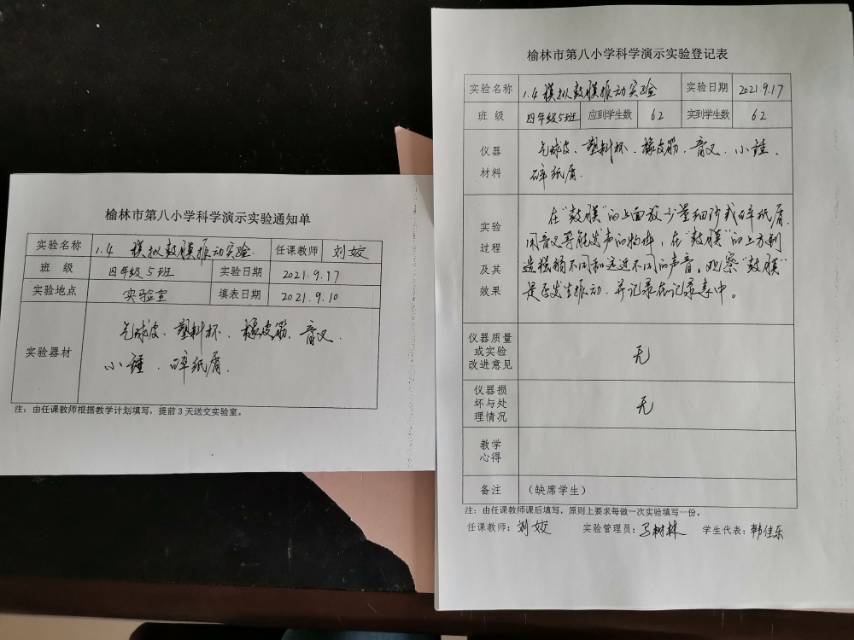 榆林市第八小学科学演示实验通知单
实验名称 1.4 模拟鼓膜振动实验 任课教师 刘姣
班 级 四年级5班 实验日期 2021.9.17
实验地点 实验室 填表日期 2021.9.10
实验器材 气球皮、塑料杯、橡皮筋、音叉、
小锤、碎纸屑.
注：由任课教师根据教学计划填写，提前3天送交实验室。
榆林市第八小学科学演示实验登记表
实验名称 1.4 模拟鼓膜振动实验 实验日期 2021.9.17
班 级 四年级5班 应到学生数 62 实到学生数 62
仪器材料 气球皮、塑料杯、橡皮筋、音叉、小锤、
碎纸屑.
实验过程及其效果 在“鼓膜”的上面放少量细沙或碎纸屑.
用音叉等能发声的物体，在“鼓膜”的上方制
造强弱不同和远近不同的声音。观察“鼓膜”
是否发生振动，并记录在记录表中。
仪器质量或实验改进意见 无
仪器损坏与处理情况 无
教学心得
备注 （缺席学生）
注：由任课教师课后填写，原则上要求每做一次实验填写一份。
任课教师：刘姣 实验管理员：马树林 学生代表：韩佳乐